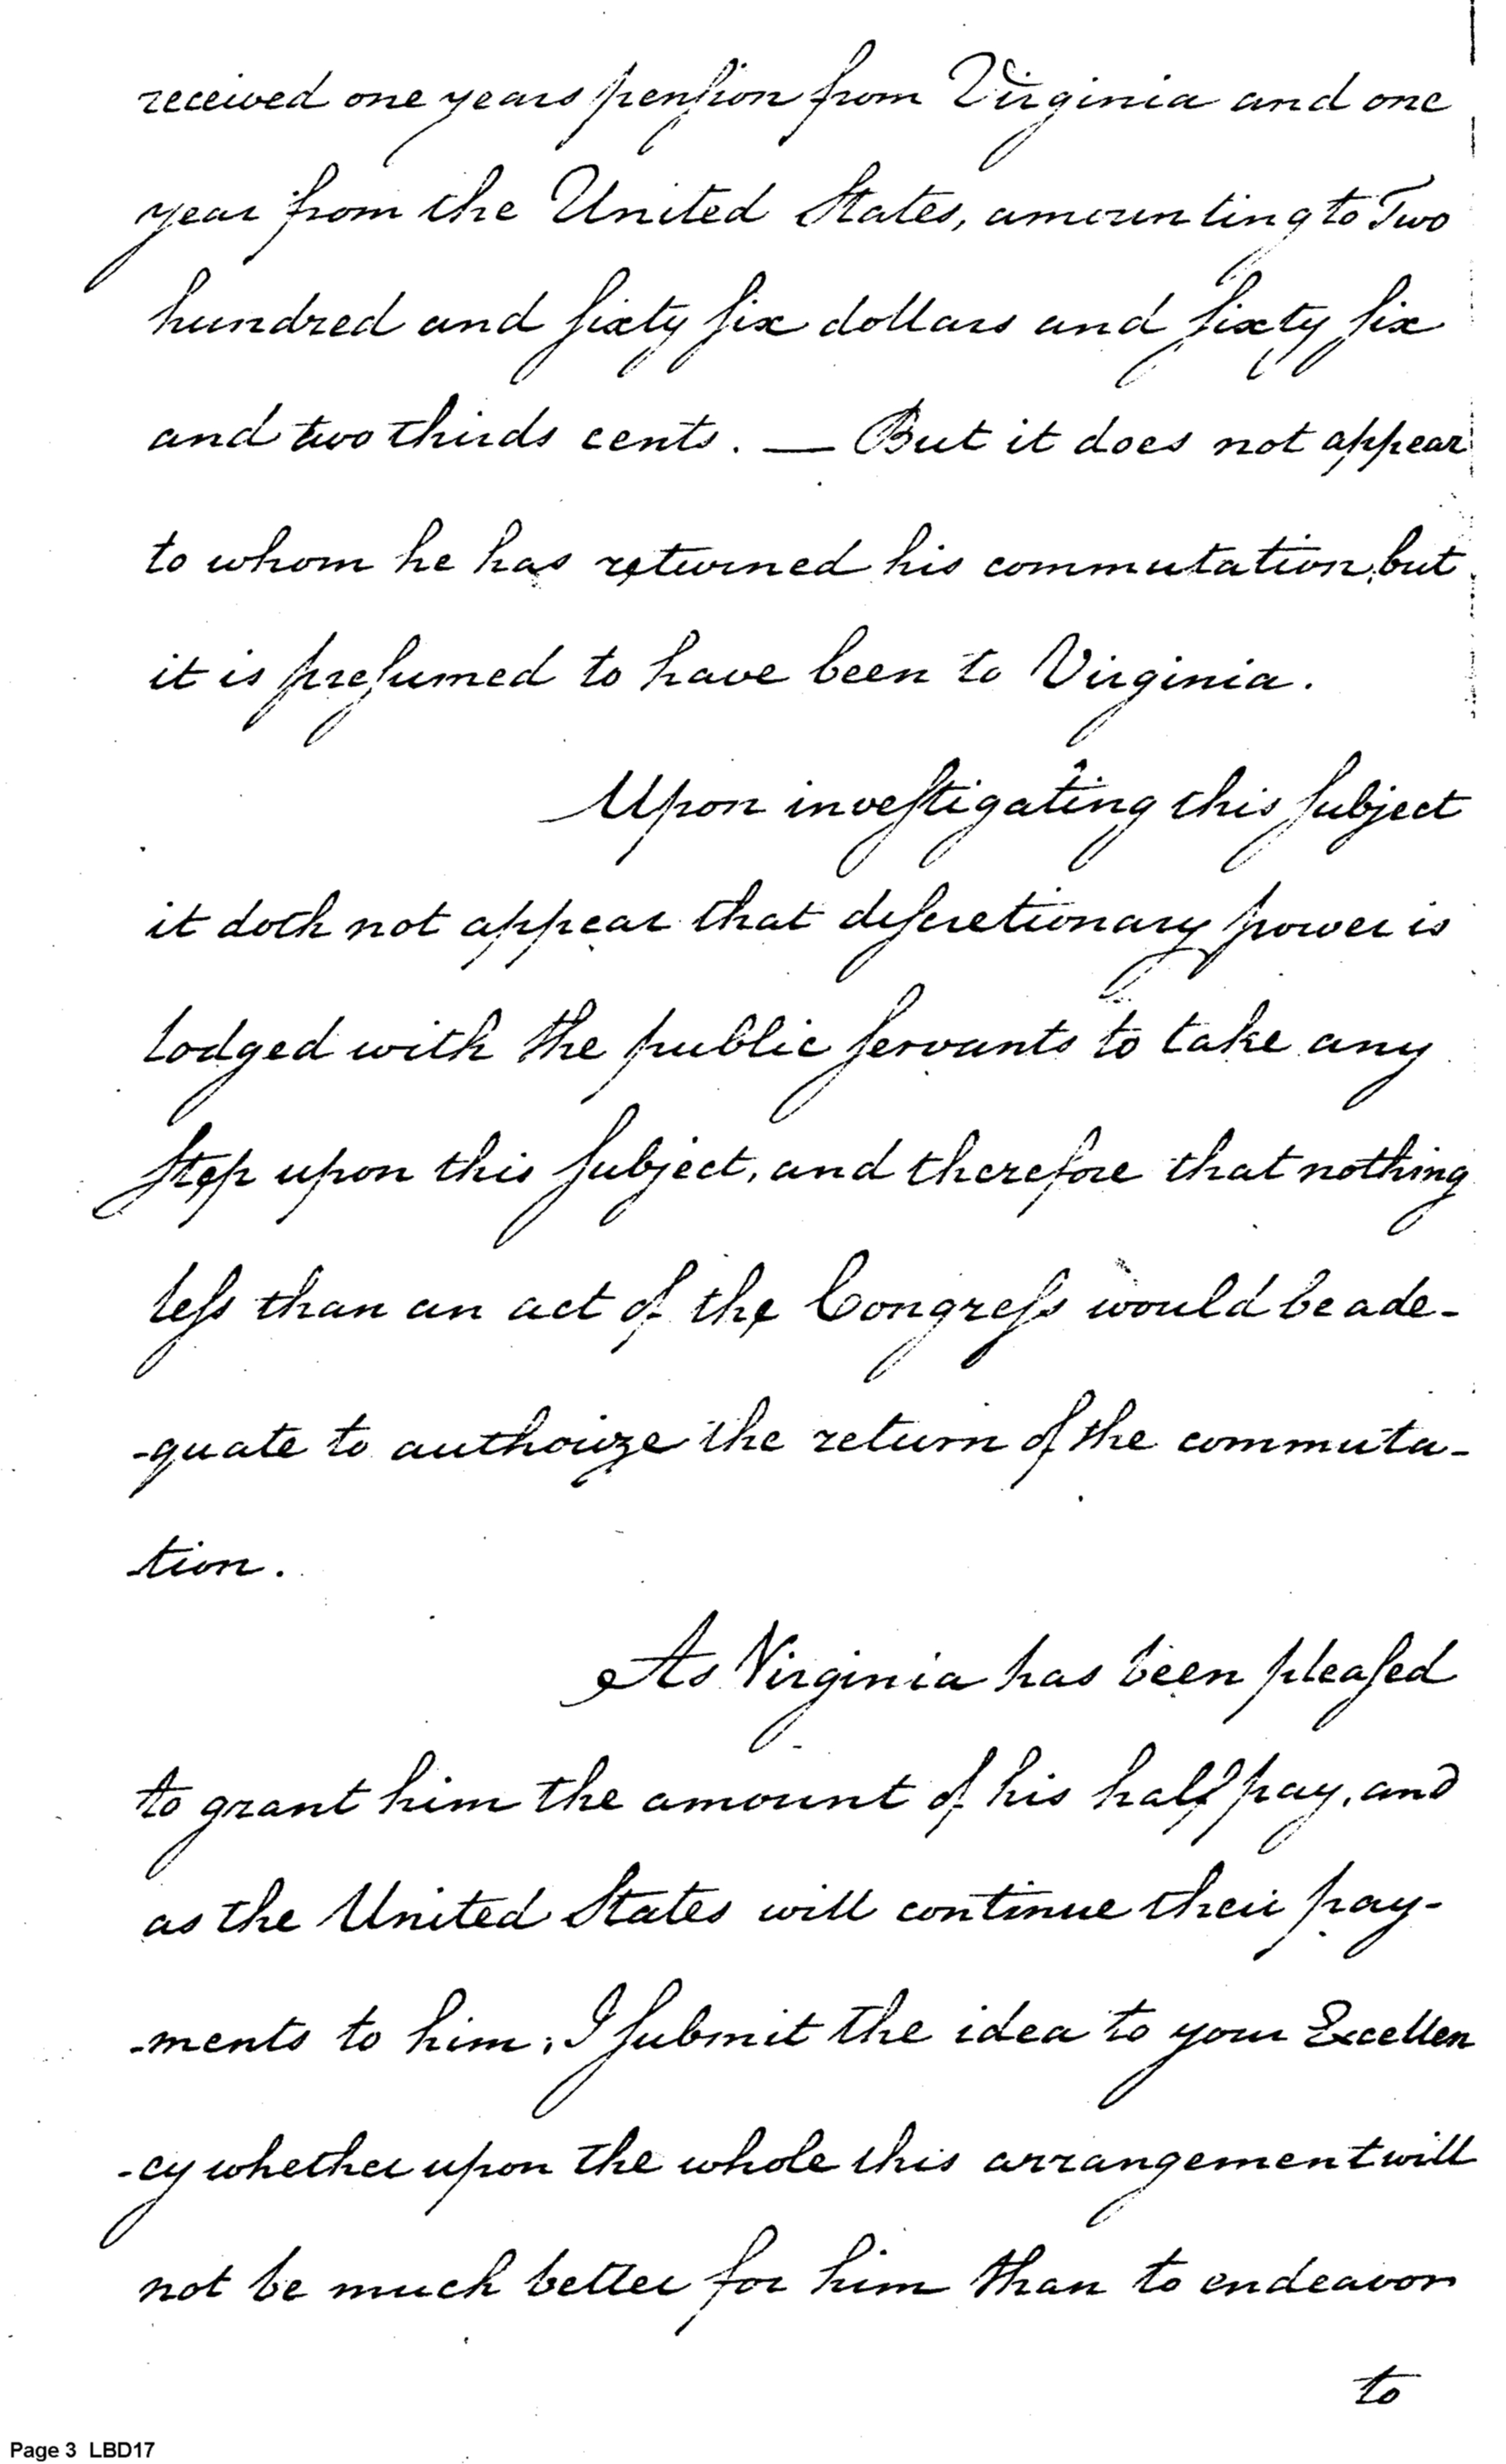 received one years pension from Virginia and one
year from the United States, amounting to Two
hundred and sixty six dollars and sixty six
and two thirds cents. — But it does not appear
to whom he has returned his commutation, but
it is presumed to have been to Virginia.
Upon investigating this subject
it doth not appear that discretionary power is
lodged with the public servants to take any
step upon this subject, and therefore that nothing
less than an act of the Congress would be ade-
-quate to authorize the return of the commuta-
-tion.
As Virginia has been pleased
to grant him the amount of his half pay, and
as the United States will continue their pay-
-ments to him; I submit the idea to your Excellen
-cy whether upon the whole this arrangement will
not be much better for him than to endeavor
to
Page 3 LBD17